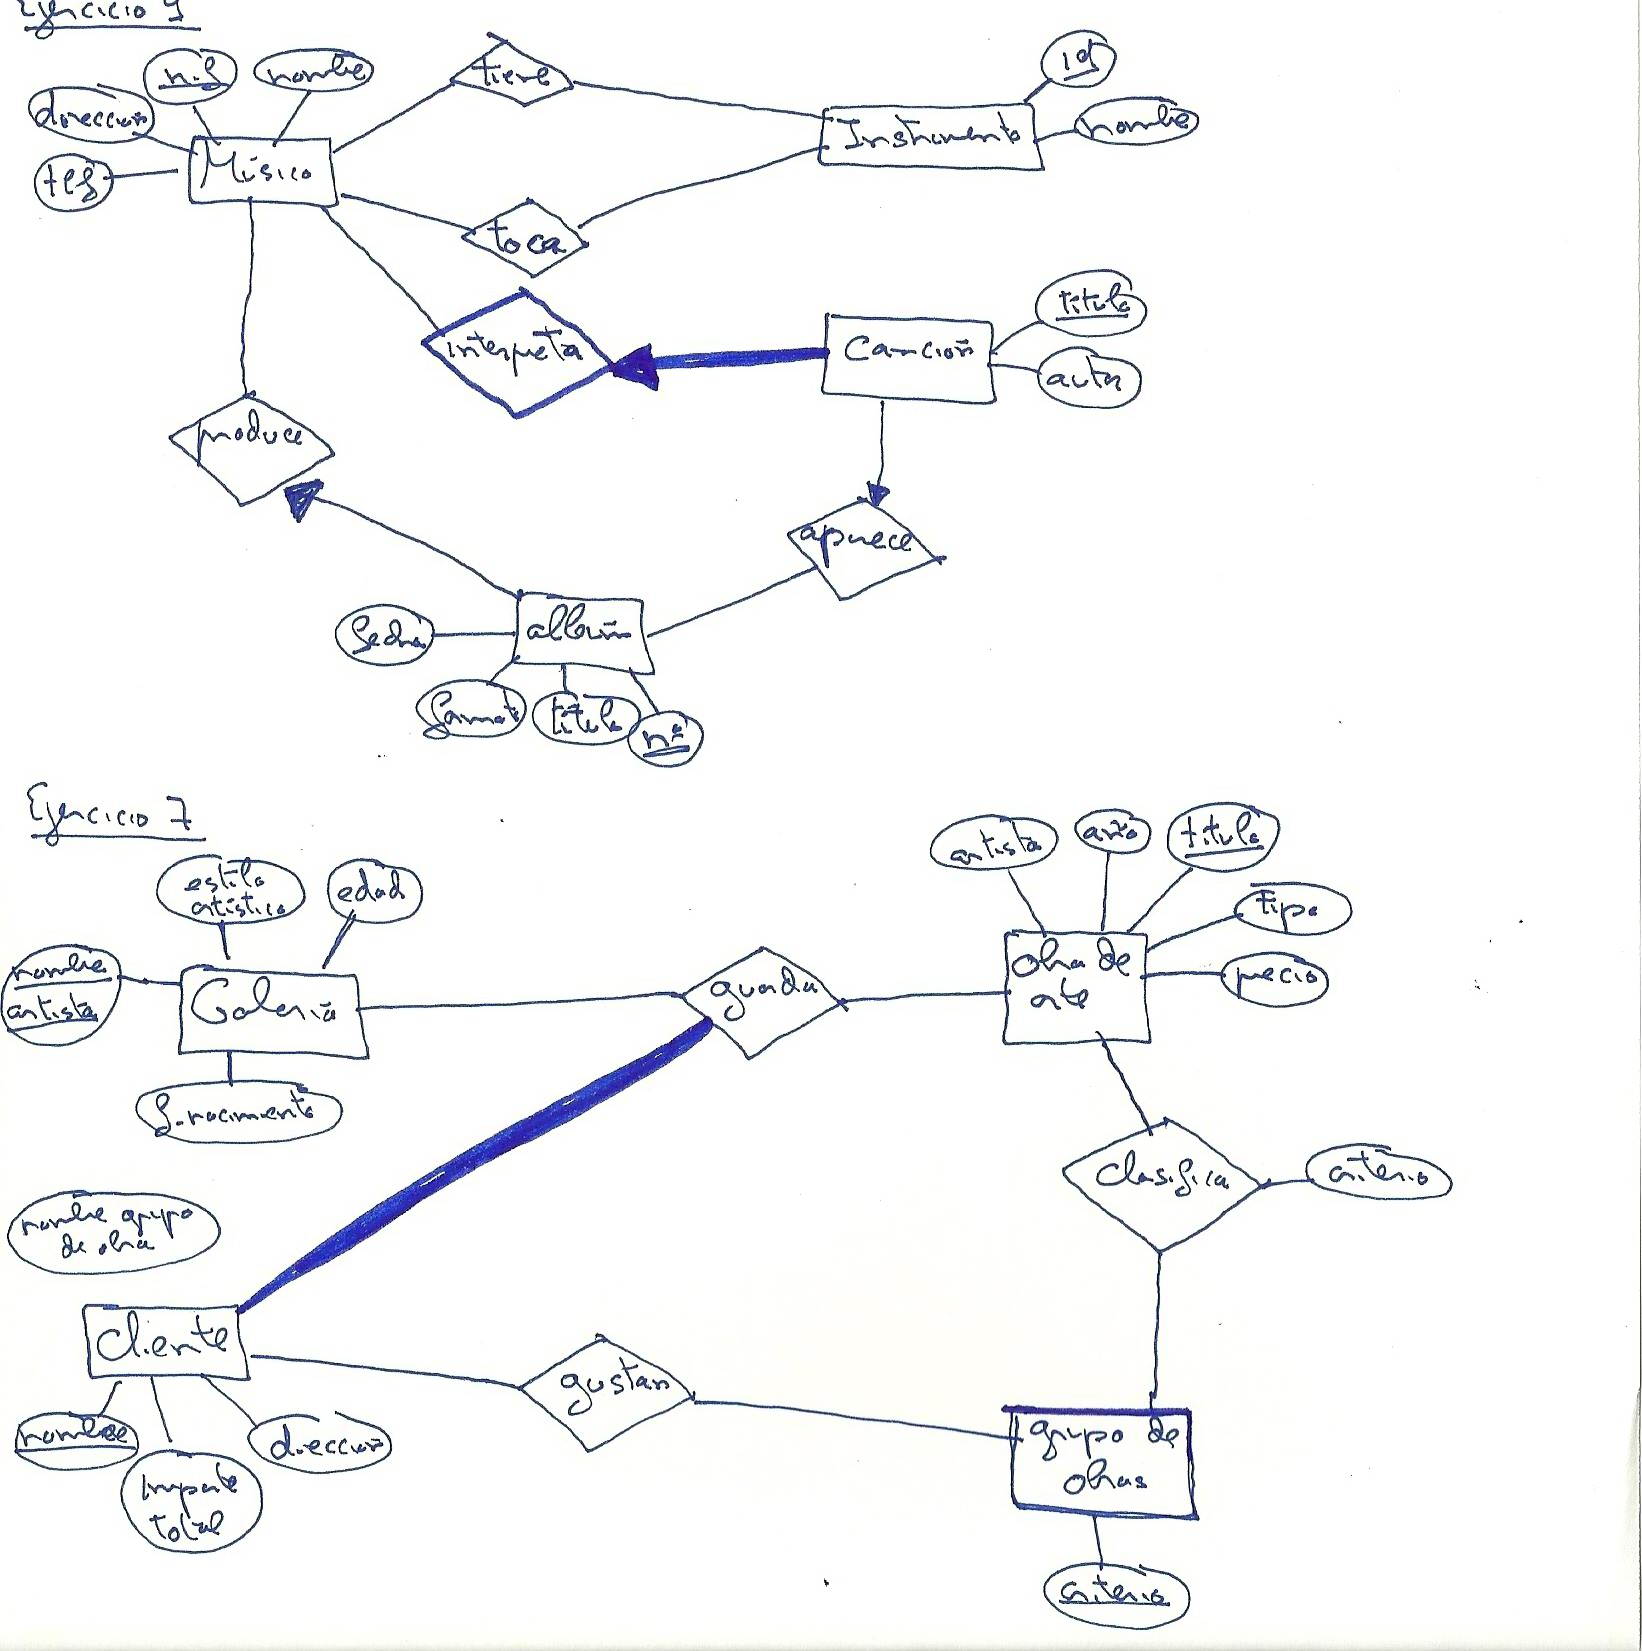 Ejercicio 5
nif
nombre
dirección
tlf
Músico
tiene
toca
Instrumento
id
nombre
interpreta
Canción
titulo
autor
produce
aparece
album
fecha
formato
título
nº
Ejercicio 7
estilo
artístico
edad
nombre
artista
Galería
f.nacimiento
guarda
artista
año
titulo
tipo
precio
obra de
arte
clasifica
criterio
nombre grupo
de obra
Cliente
nombre
importe
total
dirección
gustan
grupo de
obras
criterio